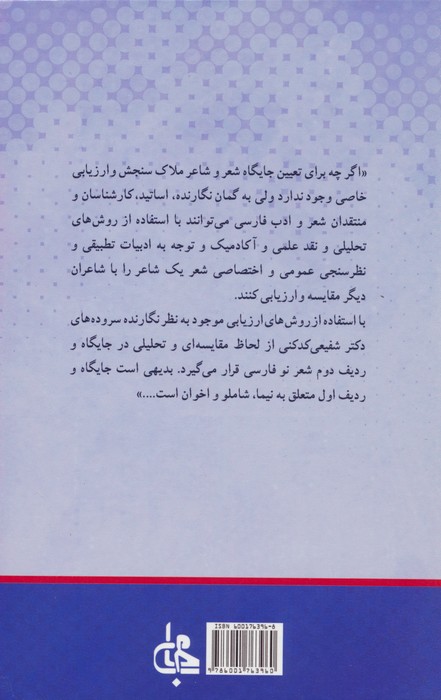 «اگر چه برای تعیین جایگاه شعر و شاعر ملاک سنجش و ارزیابی
خاصی وجود ندارد ولی به گمان نگارنده، اساتید، کارشناسان و
منتقدان شعر و ادب فارسی می‌توانند با استفاده از روش‌های
تحلیلی و نقد علمی و آکادمیک و توجه به ادبیات تطبیقی و
نظرسنجی عمومی و اختصاصی شعر یک شاعر را با شاعران
دیگر مقایسه و ارزیابی کنند.
با استفاده از روش‌های ارزیابی موجود به نظر نگارنده سروده‌های
دکتر شفیعی‌کدکنی از لحاظ مقایسه‌ای و تحلیلی در جایگاه و
ردیف دوم شعر نو فارسی قرار می‌گیرد. بدیهی است جایگاه و
ردیف اول متعلق به نیما، شاملو و اخوان است....»
ISBN 600176396-8
9 786001 763960